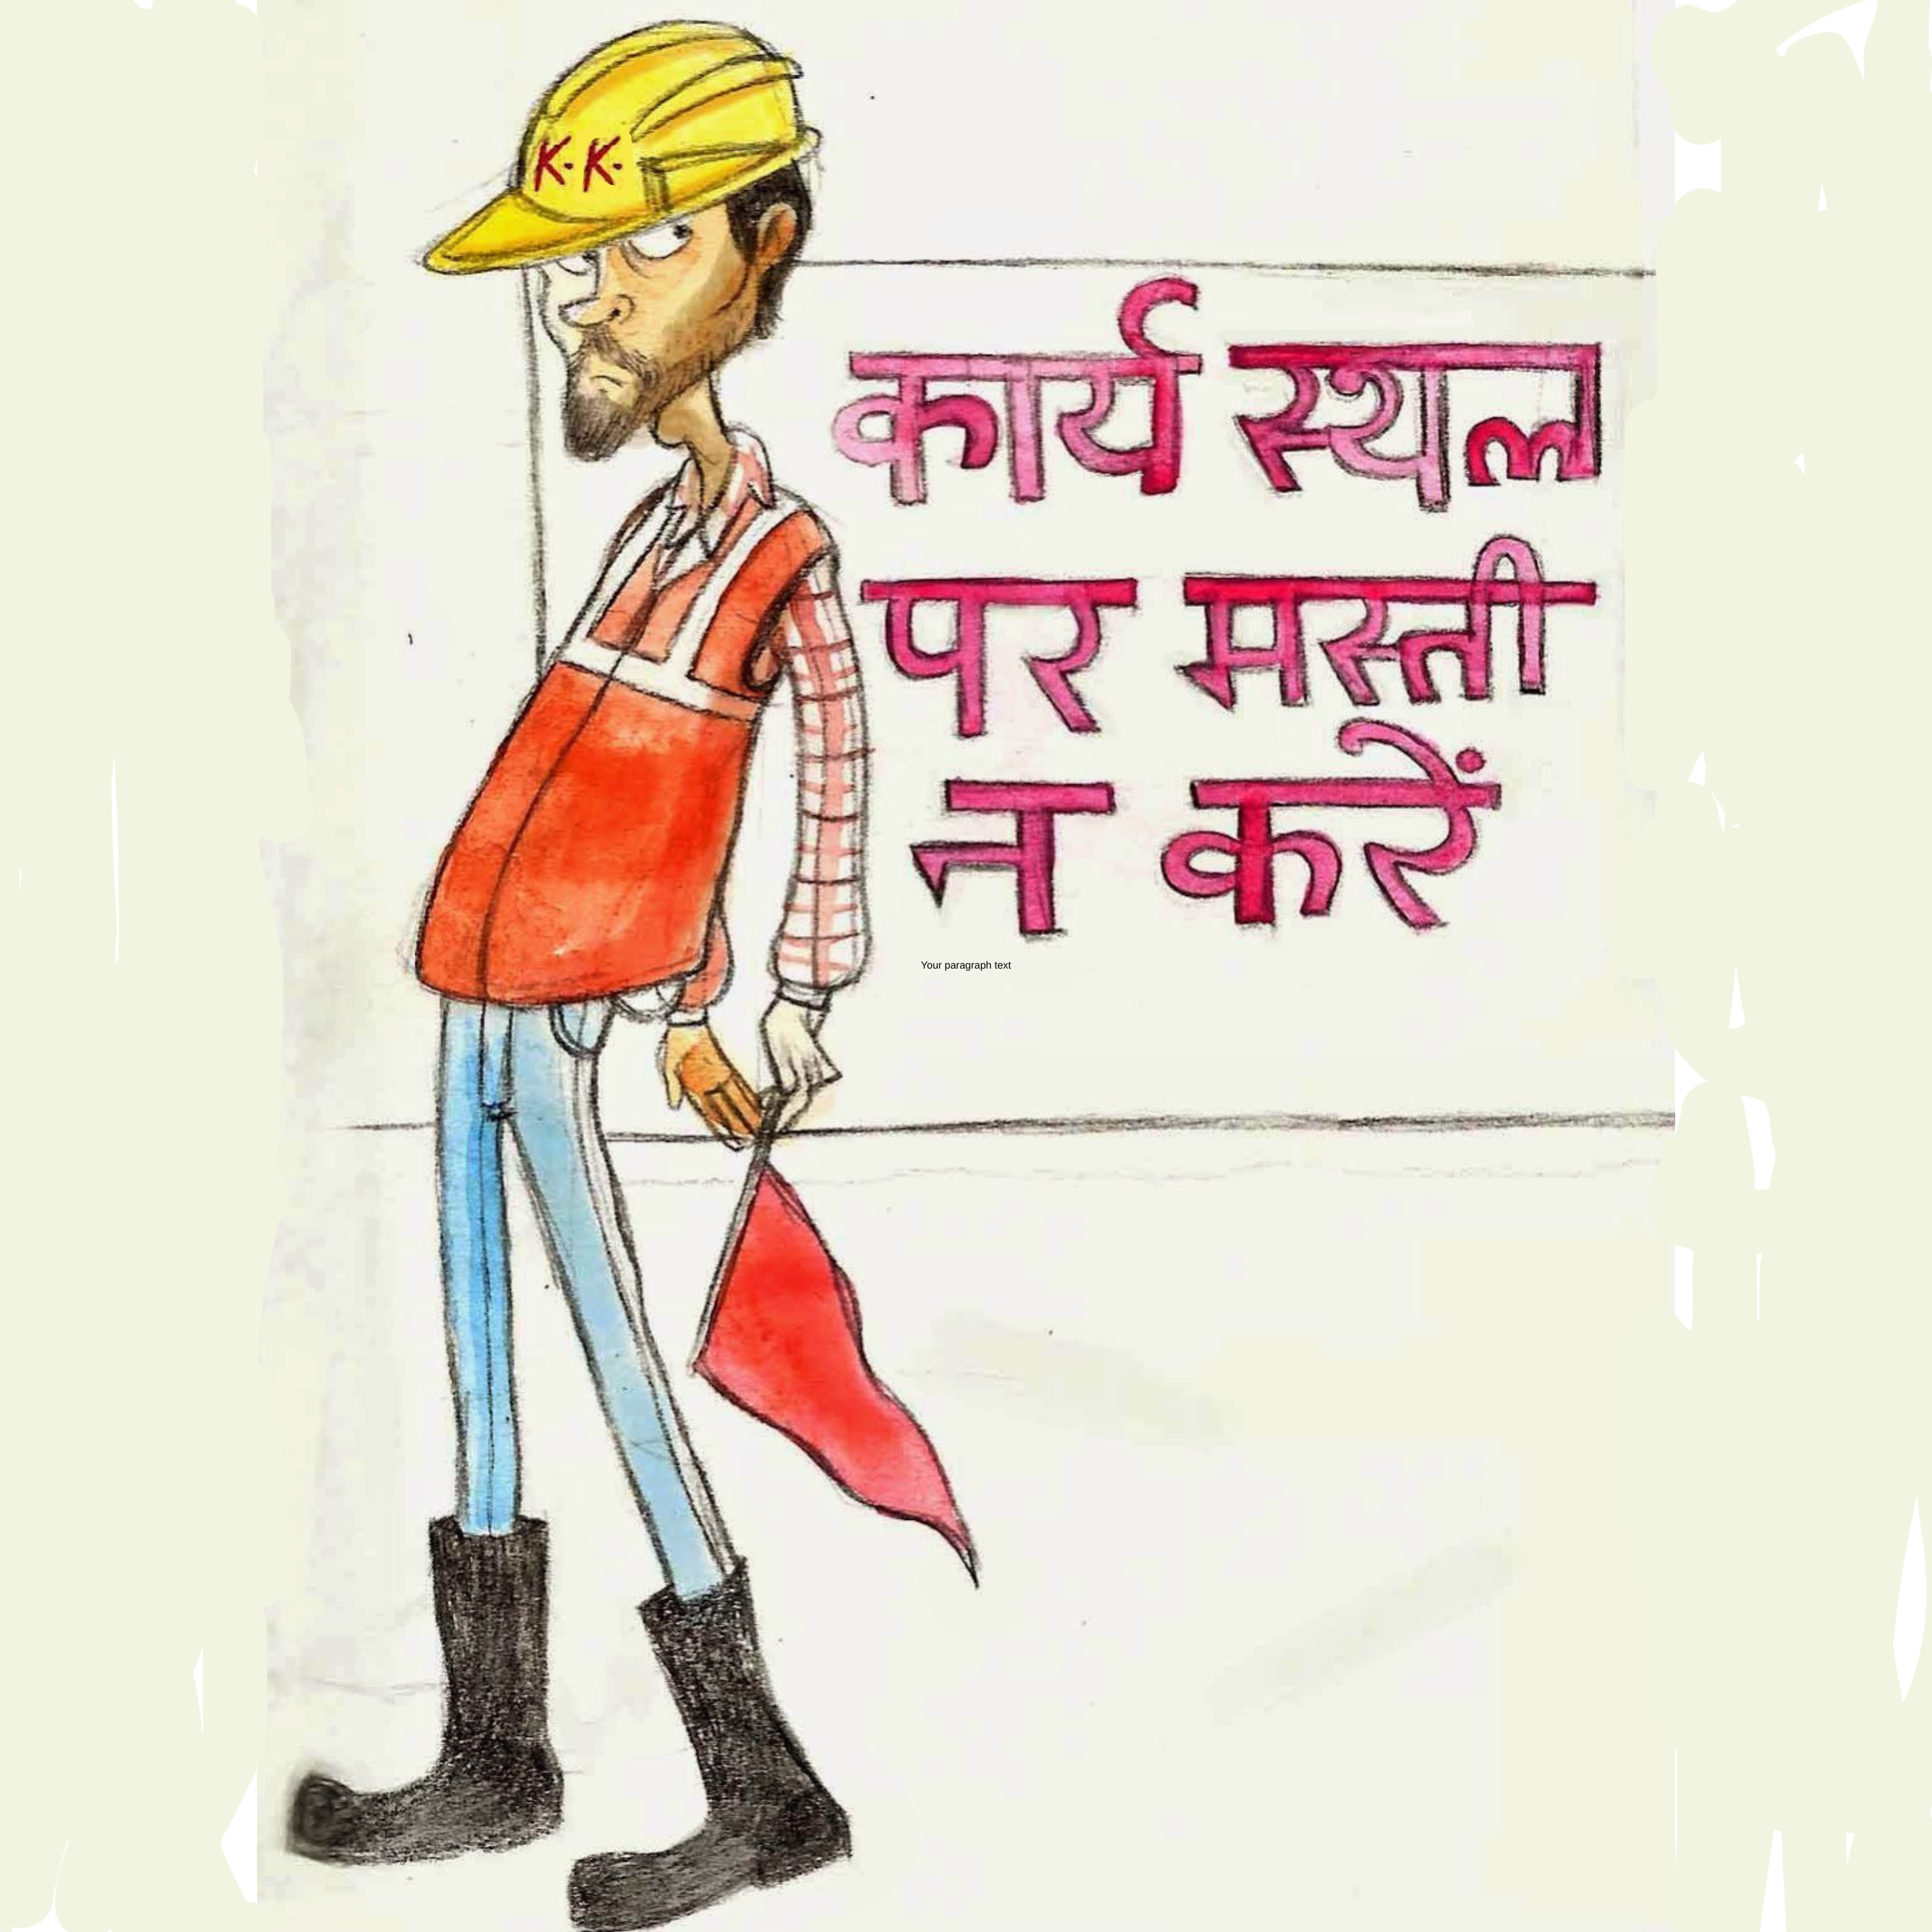 K.K.
कार्य स्थल
पर मस्ती
न करें
Your paragraph text